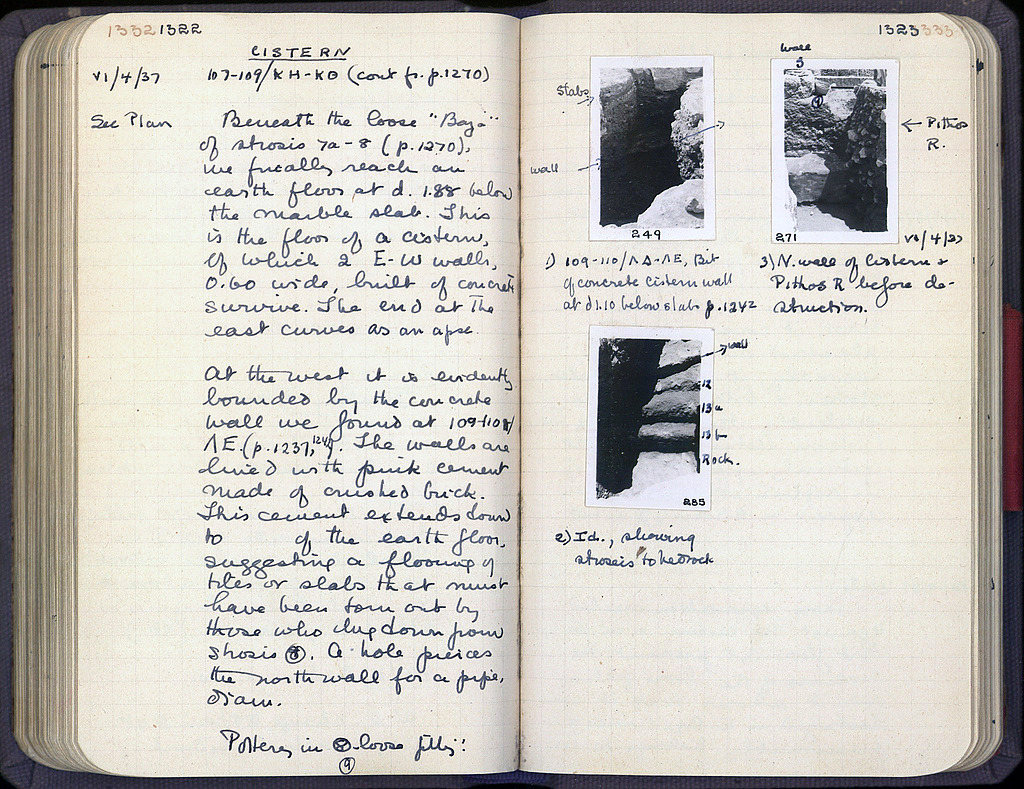 1332 1322
CISTERN
VI/4/37 107-109/KH-KΘ (cont fr. p.1270)
See Plan
Beneath the loose
of strosis 7a-8 (p.1270),
we finally reach an
earth floor at d. 1.88 below
the marble slab. This
is the floor of a cistern,
of which 2 E-W walls,
0.60 wide, built of concrete
survive. The end at the
east curves as an apse.
At the west it is evidently
bounded by the concrete
wall we found at
ΛE. (p.1237, ). The walls are
lined with pink cement
made of crushed brick.
This cement extends down
to of the earth floor,
suggesting a flooring of
tiles or slabs that must
have been torn out by
those who dug down from
strosis 8. A hole pierces
the north wall for a pipe,
diam.
Pottery in loose filling:
9
1323 333
Slabs
wall
249
1) 109-110/ΛΔ-ΛE, Bit
of concrete cistern wall
at d 1.10 below slab p.1242
wall
3
Pithos
R.
271
VI/4/37
3) N. wall of Cistern +
Pithos R before de-
struction.
wall
12
13a
13b
Rock.
285
2) Id., showing
strosis to bedrock